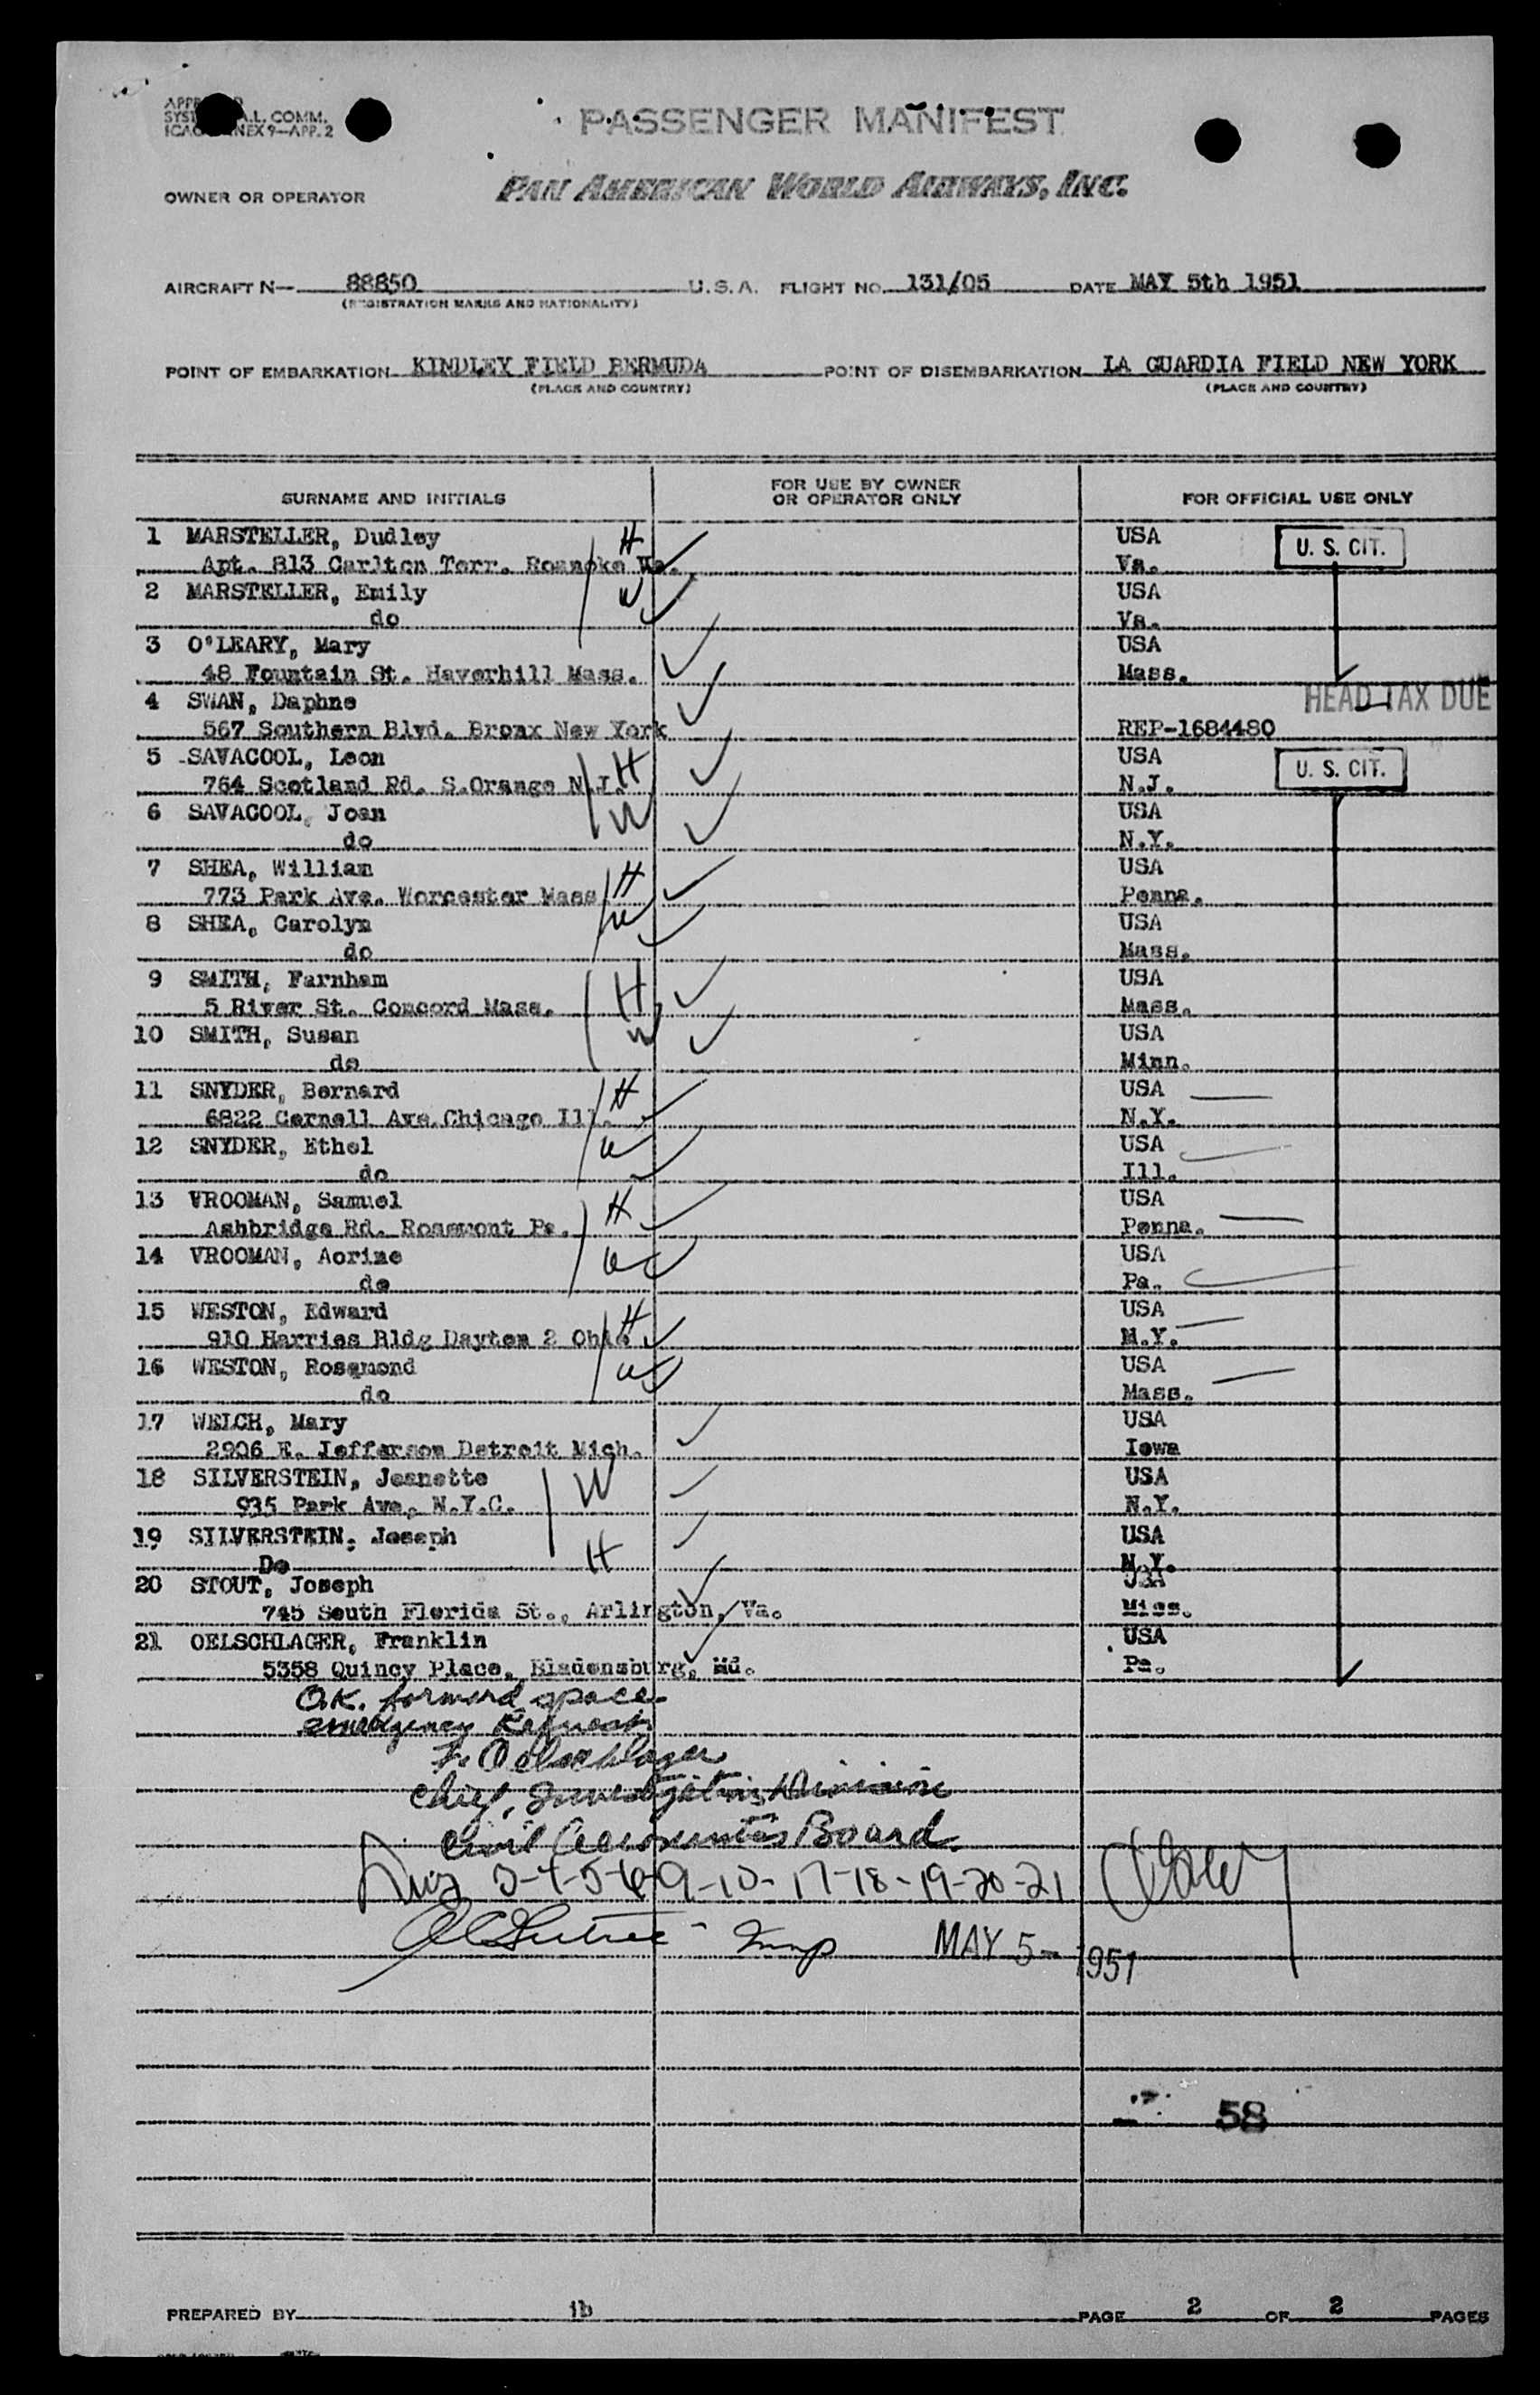 PASSENGER MANIFEST
OWNER OR OPERATOR PAN AMERICAN WORLD AIRWAYS, INC.
AIRCRAFT N— 88850 U.S.A. FLIGHT NO. 131/05 DATE MAY 5th 1951
(REGISTRATION MARKS AND NATIONALITY)
POINT OF EMBARKATION KINDLEY FIELD BERMUDA POINT OF DISEMBARKATION LA GUARDIA FIELD NEW YORK
(PLACE AND COUNTRY) (PLACE AND COUNTRY)
SURNAME AND INITIALS FOR USE BY OWNER OR OPERATOR ONLY FOR OFFICIAL USE ONLY
1 MARSTELLER, Dudley H USA U. S. CIT.
Apt. 813 Carlton Terr. Roanoke Va. Va.
2 MARSTELLER, Emily W USA
do Va.
3 O'LEARY, Mary USA
48 Fountain St. Haverhill Mass. Mass.
4 SWAN, Daphne HEAD TAX DUE
567 Southern Blvd. Bronx New York REP-1684480
5 SAVACOOL, Leon H USA U. S. CIT.
764 Scotland Rd. S.Orange N.J. N.J.
6 SAVACOOL, Joan W USA
do N.Y.
7 SHEA, William H USA
773 Park Ave. Worcester Mass Penna.
8 SHEA, Carolyn W USA
do Mass.
9 SMITH, Farnham H USA
5 River St. Concord Mass. Mass.
10 SMITH, Susan W USA
do Minn.
11 SNYDER, Bernard H USA
6822 Cornell Ave. Chicago Ill. N.Y.
12 SNYDER, Ethel W USA
do Ill.
13 VROOMAN, Samuel H USA
Ashbridge Rd. Rosemont Pa. Penna.
14 VROOMAN, Aorine W USA
do Pa.
15 WESTON, Edward H USA
910 Harries Bldg Dayton 2 Ohio N.Y.
16 WESTON, Rosamond W USA
do Mass.
17 WELCH, Mary USA
2906 E. Jefferson Detroit Mich. Iowa
18 SILVERSTEIN, Jeanette W USA
935 Park Ave, N.Y.C. N.Y.
19 SILVERSTEIN, Joseph USA
Do H N.Y.
20 STOUT, Joseph USA
745 South Florida St., Arlington, Va. Miss.
21 OELSCHLAGER, Franklin USA
5358 Quincy Place, Bladensburg, Md. Pa.
O.K. forward space
emergency Request
F. Oelschlager
Chief, Investigation Division
Civil Aeronautics Board
3-4-5-6-9-10-17-18-19-20-21
Imp MAY 5 - 1951
58
PREPARED BY ib PAGE 2 OF 2 PAGES